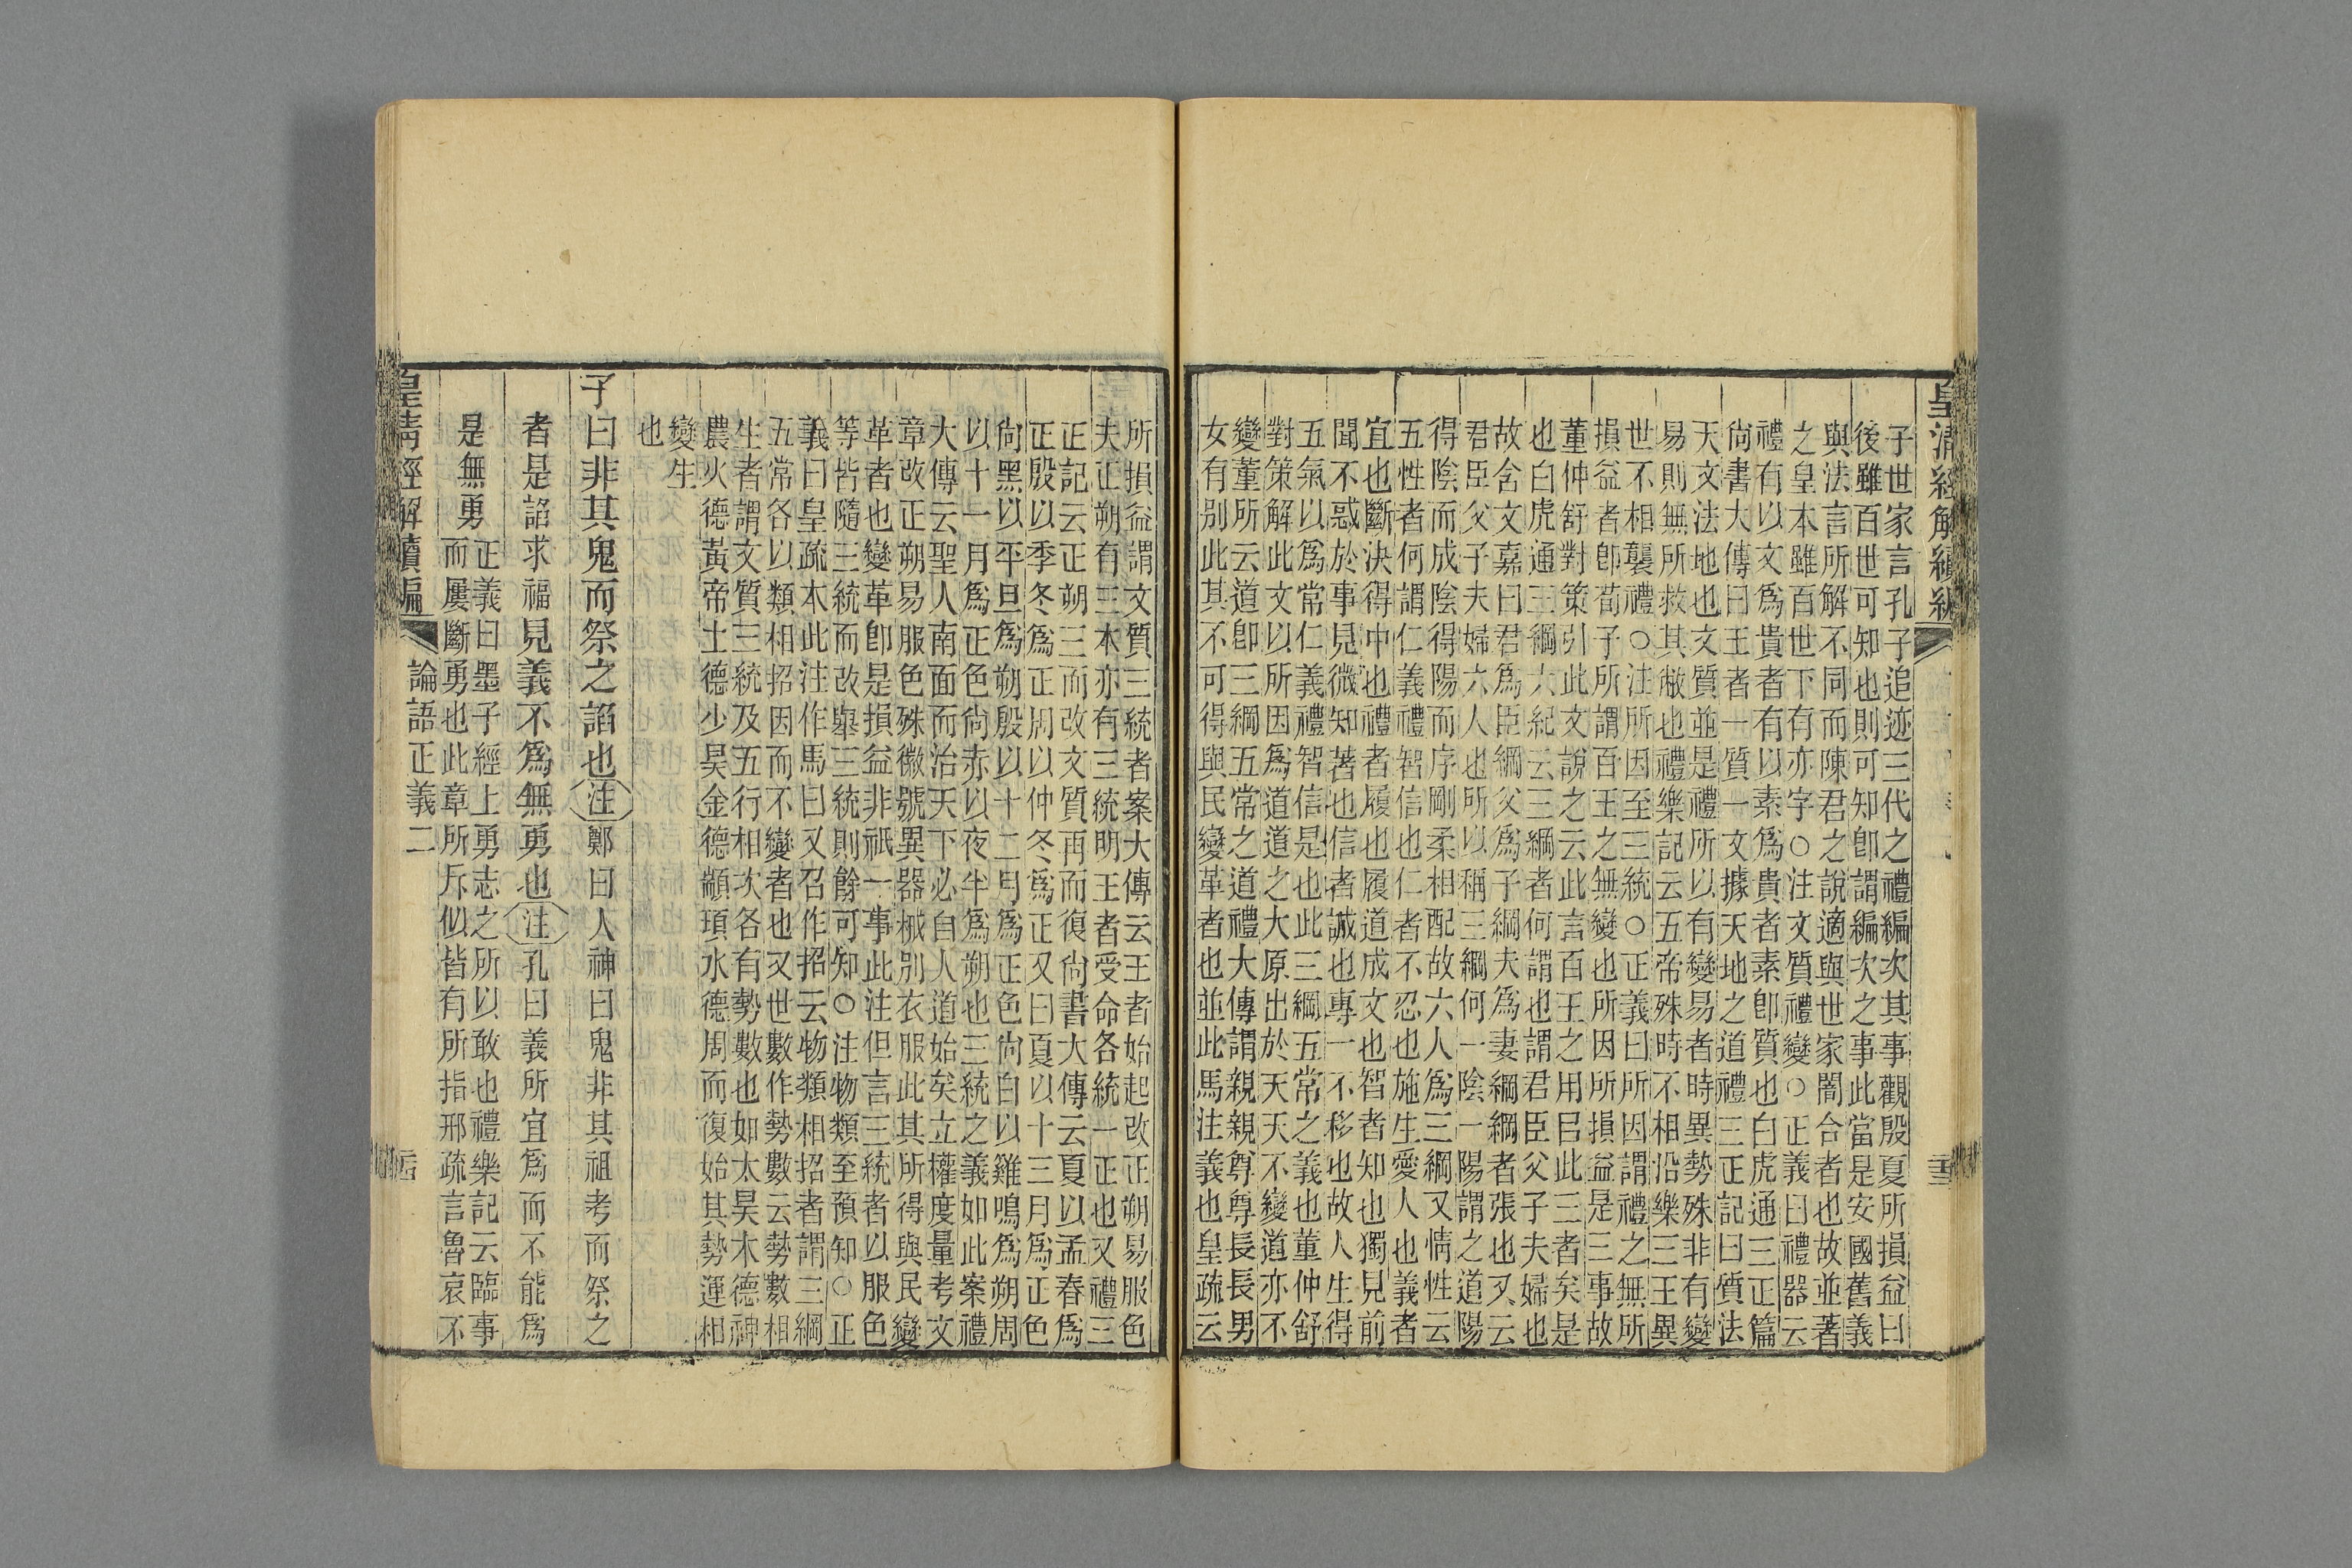 皇清經解續編
子世家言孔子追迹三代之禮編次其事觀殷夏所損益曰
後雖百世可知也則可知卽謂編次之事此當是安國舊義
與法言所解不同而陳君之說適與世家闇合者也故並著
之皇本雖百世下有亦字○注文質禮變○正義曰禮器云
禮有以文爲貴者有以素爲貴者素卽質也白虎通三正篇
尙書大傳曰王者一質一文據天地之道禮三正記曰質法
天文法地也文質並是禮所以有變易者時異勢殊非有變
易則無所救其敝也禮樂記云五帝殊時不相沿樂三王異
世不相襲禮○注所因至三統○正義曰所因謂禮之無所
損益者卽荀子所謂百王之無變也所因所損益是三事故
董仲舒對策引此文說之云此言百王之用㠯此三者矣是
也白虎通三綱六紀云三綱者何謂也謂君臣父子夫婦也
故含文嘉曰君爲臣綱父爲子綱夫爲妻綱綱者張也又云
君臣父子夫婦六人也所以稱三綱何一陰一陽謂之道陽
得陰而成陰得陽而序剛柔相配故六人爲三綱又情性云
五性者何謂仁義禮智信也仁者不忍也施生愛人也義者
宜也斷決得中也禮者履也履道成文也智者知也獨見前
聞不惑於事見微知著也信者誠也專一不移也故人生得
五氣以爲常仁義禮智信是也此三綱五常之義也董仲舒
對策解此文以所因爲道道之大原出於天天不變道亦不
變董所云道卽三綱五常之道禮大傳謂親親尊尊長長男
女有別此其不可得與民變革者也並此馬注義也皇疏云
所損益謂文質三統者案大傳云王者始起改正朔易服色
夫正朔有三本亦有三統明王者受命各統一正也又禮三
正記云正朔三而改文質再而復尙書大傳云夏以孟春爲
正殷以季冬爲正周以仲冬爲正又曰夏以十三月爲正色
尙黑以平旦爲朔殷以十二月爲正色尙白以雞鳴爲朔周
以十一月爲正色尙赤以夜半爲朔也三統之義如此案禮
大傳云聖人南面而治天下必自人道始矣立權度量考文
章改正朔易服色殊徽號異器械別衣服此其所得與民變
革者也變革卽是損益非祇一事此注但言三統者以服色
等皆隨三統而改舉三統則餘可知○注物類至預知○正
義曰皇疏本此注作馬曰又召作招云物類相招者謂三綱
五常各以類相招因而不變者也又世數作勢數云勢數相
生者謂文質三統及五行相次各有勢數也如太昊木德神
農火德黃帝土德少昊金德顓頊水德周而復始其勢運相
變生
也
子曰非其鬼而祭之諂也注鄭曰人神曰鬼非其祖考而祭之
者是諂求福見義不爲無勇也注孔曰義所宜爲而不能爲
是無勇正義曰墨子經上勇志之所以敢也禮樂記云臨事
而屢斷勇也此章所斥似皆有所指邢疏言魯哀不
皇清經解續編
論語正義二